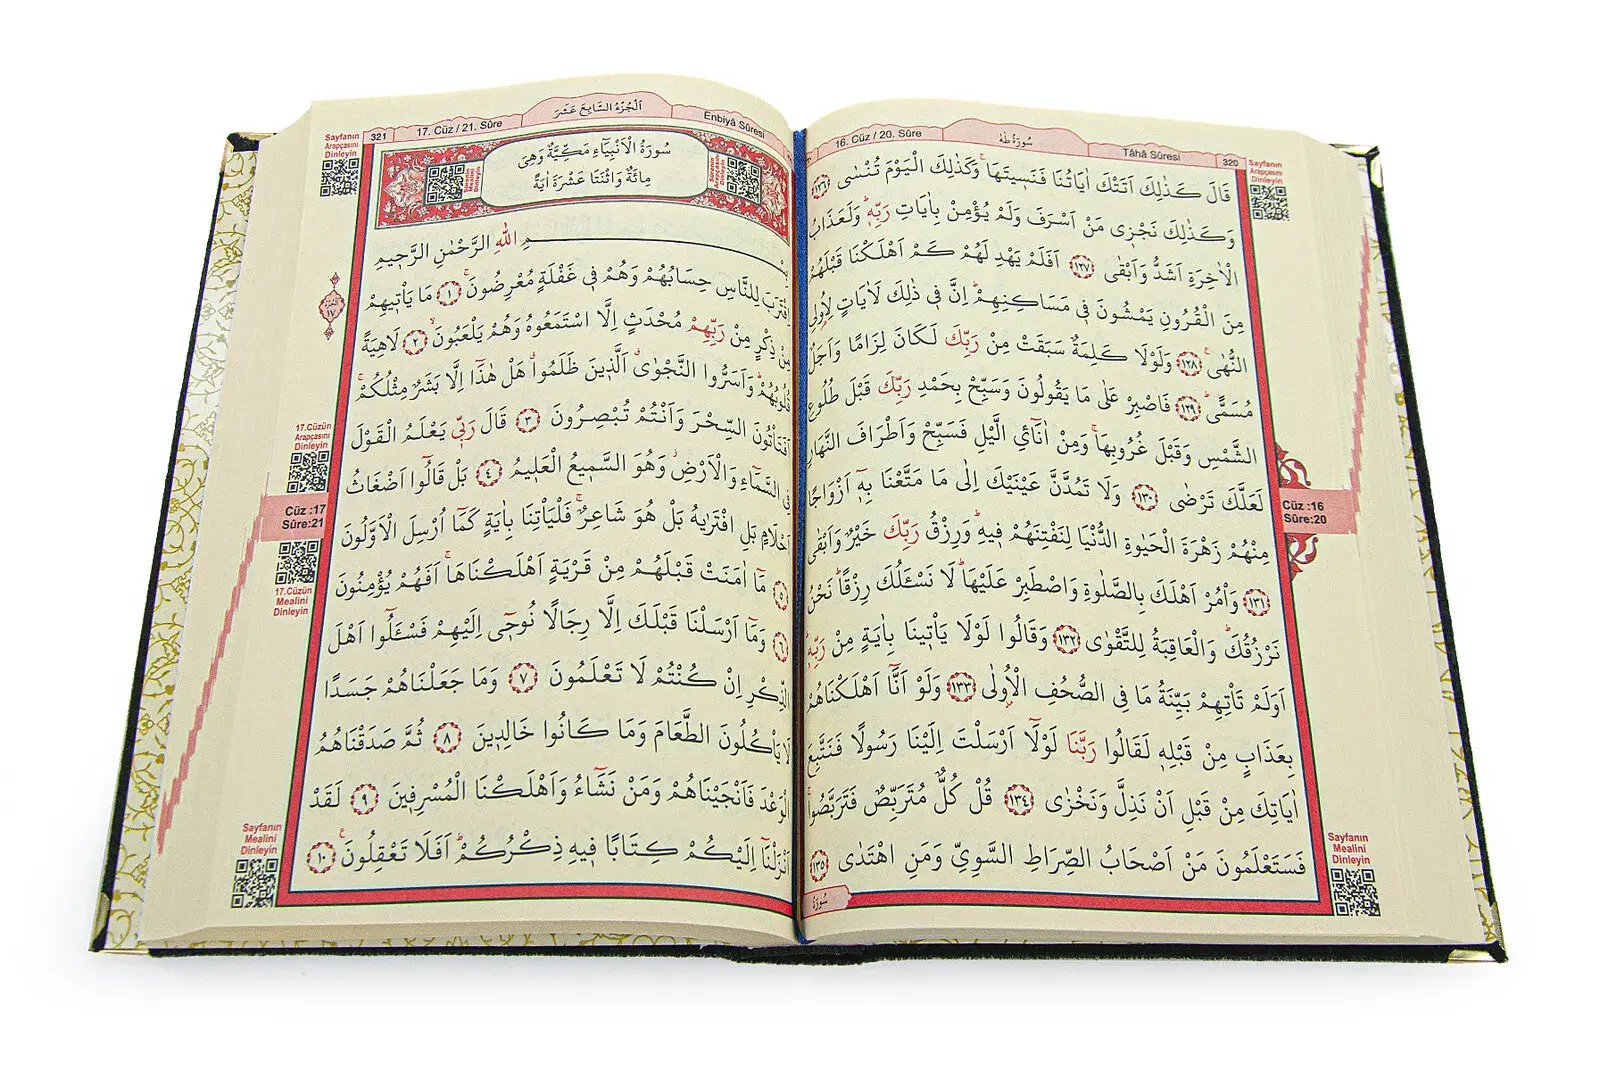 320
Tâhâ Sûresi
سُورَةُ طٰهٰ
16. Cüz / 20. Sûre
Sayfanın
Arapçasını
Dinleyin
قَالَ كَذٰلِكَ اَتَتْكَ اٰيَاتُنَا فَنَسٖيتَهَاۚ وَكَذٰلِكَ الْيَوْمَ تُنْسٰى ﴿١٢٦﴾
وَكَذٰلِكَ نَجْزٖى مَنْ اَسْرَفَ وَلَمْ يُؤْمِنْ بِاٰيَاتِ رَبِّهٖؕ وَلَعَذَابُ
الْاٰخِرَةِ اَشَدُّ وَاَبْقٰى ﴿١٢٧﴾ اَفَلَمْ يَهْدِ لَهُمْ كَمْ اَهْلَكْنَا قَبْلَهُمْ
مِنَ الْقُرُونِ يَمْشُونَ فٖى مَسَاكِنِهِمْؕ اِنَّ فٖى ذٰلِكَ لَاٰيَاتٍ لِاُولِى
النُّهٰىۚ ﴿١٢٨﴾ وَلَوْلَا كَلِمَةٌ سَبَقَتْ مِنْ رَبِّكَ لَكَانَ لِزَامًا وَاَجَلٌ
مُسَمًّىؕ ﴿١٢٩﴾ فَاصْبِرْ عَلٰى مَا يَقُولُونَ وَسَبِّحْ بِحَمْدِ رَبِّكَ قَبْلَ طُلُوعِ
الشَّمْسِ وَقَبْلَ غُرُوبِهَاۚ وَمِنْ اٰنَائِ الَّيْلِ فَسَبِّحْ وَاَطْرَافَ النَّهَارِ
لَعَلَّكَ تَرْضٰى ﴿١٣٠﴾ وَلَا تَمُدَّنَّ عَيْنَيْكَ اِلٰى مَا مَتَّعْنَا بِهٖٓ اَزْوَاجًا
مِنْهُمْ زَهْرَةَ الْحَيٰوةِ الدُّنْيَا لِنَفْتِنَهُمْ فٖيهِؕ وَرِزْقُ رَبِّكَ خَيْرٌ وَاَبْقٰى
﴿١٣١﴾ وَاْمُرْ اَهْلَكَ بِالصَّلٰوةِ وَاصْطَبِرْ عَلَيْهَاؕ لَا نَسْـَٔلُكَ رِزْقًاؕ نَحْنُ
نَرْزُقُكَؕ وَالْعَاقِبَةُ لِلتَّقْوٰى ﴿١٣٢﴾ وَقَالُوا لَوْلَا يَاْتٖينَا بِاٰيَةٍ مِنْ رَبِّهٖؕ
اَوَلَمْ تَاْتِهِمْ بَيِّنَةُ مَا فِى الصُّحُفِ الْاُولٰى ﴿١٣٣﴾ وَلَوْ اَنَّٓا اَهْلَكْنَاهُمْ
بِعَذَابٍ مِنْ قَبْلِهٖ لَقَالُوا رَبَّنَا لَوْلَٓا اَرْسَلْتَ اِلَيْنَا رَسُولًا فَنَتَّبِعَ
اٰيَاتِكَ مِنْ قَبْلِ اَنْ نَذِلَّ وَنَخْزٰى ﴿١٣٤﴾ قُلْ كُلٌّ مُتَرَبِّصٌ فَتَرَبَّصُواۚ
فَسَتَعْلَمُونَ مَنْ اَصْحَابُ الصِّرَاطِ السَّوِىِّ وَمَنِ اهْتَدٰى ﴿١٣٥﴾
سُورَةُ
Cüz :16
Sûre:20
Sayfanın
Mealini
Dinleyin
Enbiyâ Sûresi
اَلْجُزْءُ السَّابِعَ عَشَرَ
17. Cüz / 21. Sûre
321
Sayfanın
Arapçasını
Dinleyin
سُورَةُ الْاَنْبِيَٓاءِ مَكِّيَّةٌ وَهِىَ
مِائَةٌ وَاثْنَتَا عَشْرَةَ اٰيَةً
Sûrenin
Arapçasını
Dinleyin
Sûrenin
Mealini
Dinleyin
بِسْمِ اللّٰهِ الرَّحْمٰنِ الرَّحٖيمِ
اِقْتَرَبَ لِلنَّاسِ حِسَابُهُمْ وَهُمْ فٖى غَفْلَةٍ مُعْرِضُونَۚ ﴿١﴾ مَا يَاْتٖيهِمْ
مِنْ ذِكْرٍ مِنْ رَبِّهِمْ مُحْدَثٍ اِلَّا اسْتَمَعُوهُ وَهُمْ يَلْعَبُونَۙ ﴿٢﴾ لَاهِيَةً
قُلُوبُهُمْؕ وَاَسَرُّوا النَّجْوٰىۗ اَلَّذٖينَ ظَلَمُواۗ هَلْ هٰذَٓا اِلَّا بَشَرٌ مِثْلُكُمْۚ
اَفَتَاْتُونَ السِّحْرَ وَاَنْتُمْ تُبْصِرُونَ ﴿٣﴾ قَالَ رَبّٖى يَعْلَمُ الْقَوْلَ
فِى السَّمَٓاءِ وَالْاَرْضِؗ وَهُوَ السَّمٖيعُ الْعَلٖيمُ ﴿٤﴾ بَلْ قَالُٓوا اَضْغَاثُ
اَحْلَامٍ بَلِ افْتَرٰيهُ بَلْ هُوَ شَاعِرٌۚ فَلْيَاْتِنَا بِاٰيَةٍ كَمَٓا اُرْسِلَ الْاَوَّلُونَ
﴿٥﴾ مَٓا اٰمَنَتْ قَبْلَهُمْ مِنْ قَرْيَةٍ اَهْلَكْنَاهَاۚ اَفَهُمْ يُؤْمِنُونَ
﴿٦﴾ وَمَٓا اَرْسَلْنَا قَبْلَكَ اِلَّا رِجَالًا نُوحٖٓى اِلَيْهِمْ فَسْـَٔلُٓوا اَهْلَ
الذِّكْرِ اِنْ كُنْتُمْ لَا تَعْلَمُونَ ﴿٧﴾ وَمَا جَعَلْنَاهُمْ جَسَدًا
لَا يَاْكُلُونَ الطَّعَامَ وَمَا كَانُوا خَالِدٖينَ ﴿٨﴾ ثُمَّ صَدَقْنَاهُمُ
الْوَعْدَ فَاَنْجَيْنَاهُمْ وَمَنْ نَشَٓاءُ وَاَهْلَكْنَا الْمُسْرِفٖينَ ﴿٩﴾ لَقَدْ
اَنْزَلْنَٓا اِلَيْكُمْ كِتَابًا فٖيهِ ذِكْرُكُمْؕ اَفَلَا تَعْقِلُونَۚ ﴿١٠﴾
اَلْجُزْءُ
١٧
17.Cüzün
Arapçasını
Dinleyin
Cüz :17
Sûre:21
17.Cüzün
Mealini
Dinleyin
Sayfanın
Mealini
Dinleyin